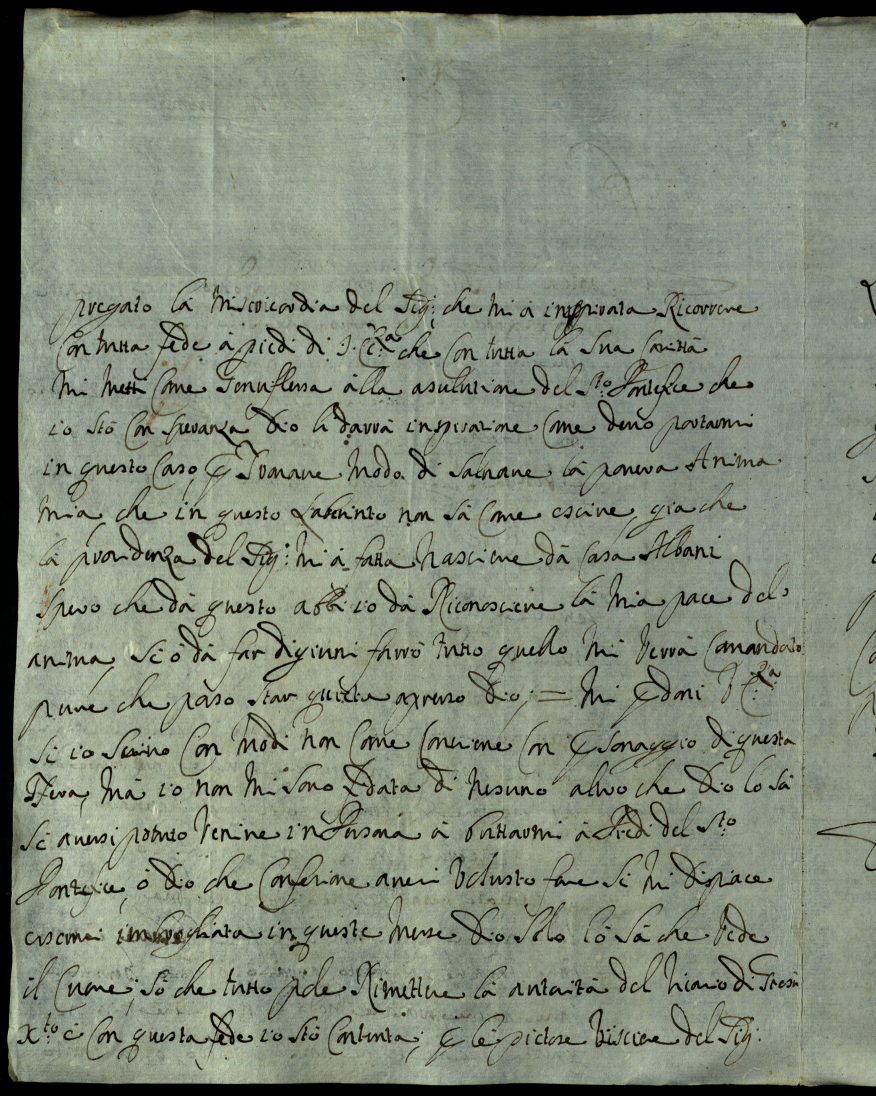 pregato la Misericordia del Sig:, che mi à inspirata Ricorrere
Con tutta fede à piedi di V. C:Ra che Con tutta la Sua Carittà
Mi metti Come Genuflessa alla asulutione del Sto Pontefice che
io stò Con speranza Dio li darrà inspiratione Come devo portarmi
in questo Caso, ꝑ Trovare Modo di Salvare la povera Anima
mia, che in questo Laberinto non Sà Come escire, gia che
la providenza del Sig: mi à fatta Nasciere da Casa Albani
Spero che da questo abbi io da Riconosciere la Mia pace del
anima, Si ò da far digiuni farrò tutto quello Mi Verrà Comandato
pure che posso star quieta apresso Dio; = Mi ꝑdoni V C:Ra
Si io Scrivo Con Modi Non Come Conviene Con ꝑsonaggio di questa
Sfera, Mà io non Mi Sono fidata di Nesuno altro che Dio lo Sà
Si aversi potuto Venire in Persona à buttarmi à Piedi del Sto
Pontefice, ò Dio che Confesione averi Volusto fare Si Mi dispiace
esermi imbrogliata in queste Merse Dio Solo lo Sà che Vede
il Cuore; Sò che tutto pole Rimettere la autorità del Vicario di Giesu
Xto e Con questa fede io Stò Contenta; ꝑ le pietose Visciere del Sig: